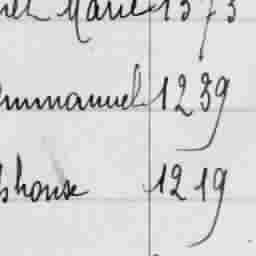 Marie 1373
mmanuel 1239
phonse 1219